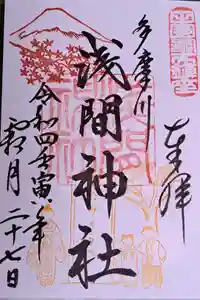 奉拝
多摩川
浅間神社
令和四壬寅年
月二十七日